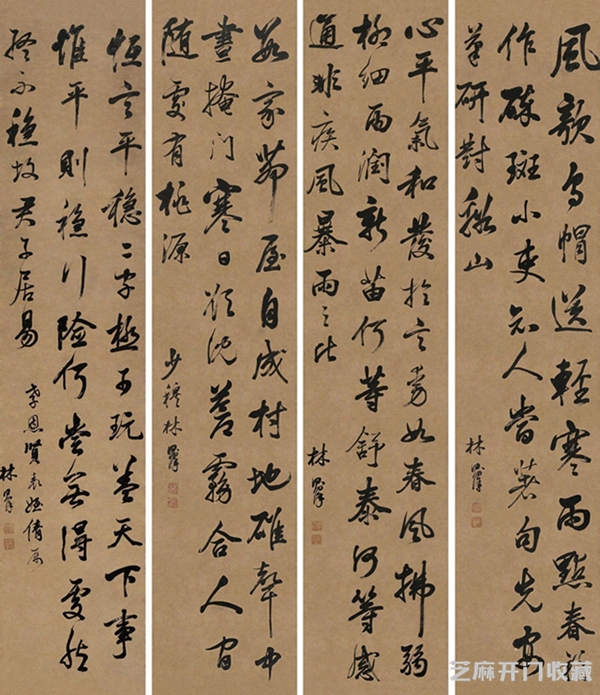 風欹烏帽送輕寒雨點春衫
作碎斑小吏知人當著句先安
筆研對谿山
林則徐
心平氣和發於言如春風拂弱
柳細雨潤新苗何等舒泰何等感
通非疾風暴雨之比
林則徐
數家茅屋自成村地碓聲中
晝掩門寒日欲沈蒼霧合人間
隨處有桃源
少穆林則徐
恆言平穩二字極可玩蓋天下事
惟平則穩行險何嘗無得處然
終不穩故君子居易
恩賢表姪倩屬
林則徐
芝麻开门收藏